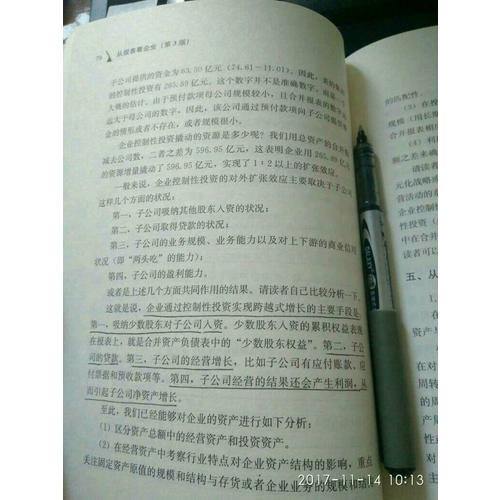 78 从报表看企业（第3版）
子公司提供的资金为63.60亿元（74.61－11.01）。因此，表的集团
的控制性投资有265.89亿元。这个数字并不是准确数字，而是一个
大概的估计。由于预付款项母公司规模较小，且合并报表的数字
远大于母公司的数字，因此，该公司通过预付款项向子公司提供资
金的情形或者不存在，或者规模很小。
企业控制性投资撬动的资源是多少呢？我们用总资产的合并数
减去公司数，二者之差为596.95亿元，这表明企业用265.89亿元
的资源增量撬动了596.95亿元，实现了1∶2以上的扩张效应。
一般来说，企业控制性投资的对外扩张效应主要取决于子公司
这样几个方面的状况：
第一，子公司吸纳其他股东入资的状况；
第二，子公司取得贷款的状况；
第三，子公司的业务规模、业务能力以及对上下游的商业信用
状况（即“两头吃”的能力）；
第四，子公司的盈利能力。
或者是上述几个方面共同作用的结果。请读者自己比较分析一下。
这就是说，企业通过控制性投资实现跨越式增长的主要手段是：
第一，吸纳少数股东对子公司入资。少数股东入资的累积权益表现
在报表上，就是合并资产负债表中的“少数股东权益”。第二，子公
司的贷款。第三，子公司的经营增长，比如子公司有应付账款、应
付票据和预收款项等。第四，子公司经营的结果还会产生利润，从
而引起子公司净资产增长。
至此，我们已经能够对企业的资产进行如下分析：
（1）区分资产总额中的经营资产和投资资产。
（2）在经营资产中考察行业特点对企业资产结构的影响，重点
关注固定资产原值的规模和结构与存货或者企业业务的规模和结
的匹配性。
（3）在投
模（用长期
合并报表相应
（4）利
额之差来确
元化战略或
营活动的系
企业控制性
投资（
中在合并
读者可以
五、从
1.
在对
周转
的周
2017-11-14 10:13